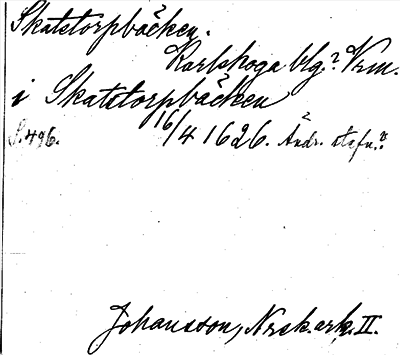 Skatstorpbäcken.
Karlskoga blg? Vrm.
i Skatstorpbäcken
S. 496. 16/4 1626. Ändr. stafn.?
Johansson, Nrsk.ark. II.